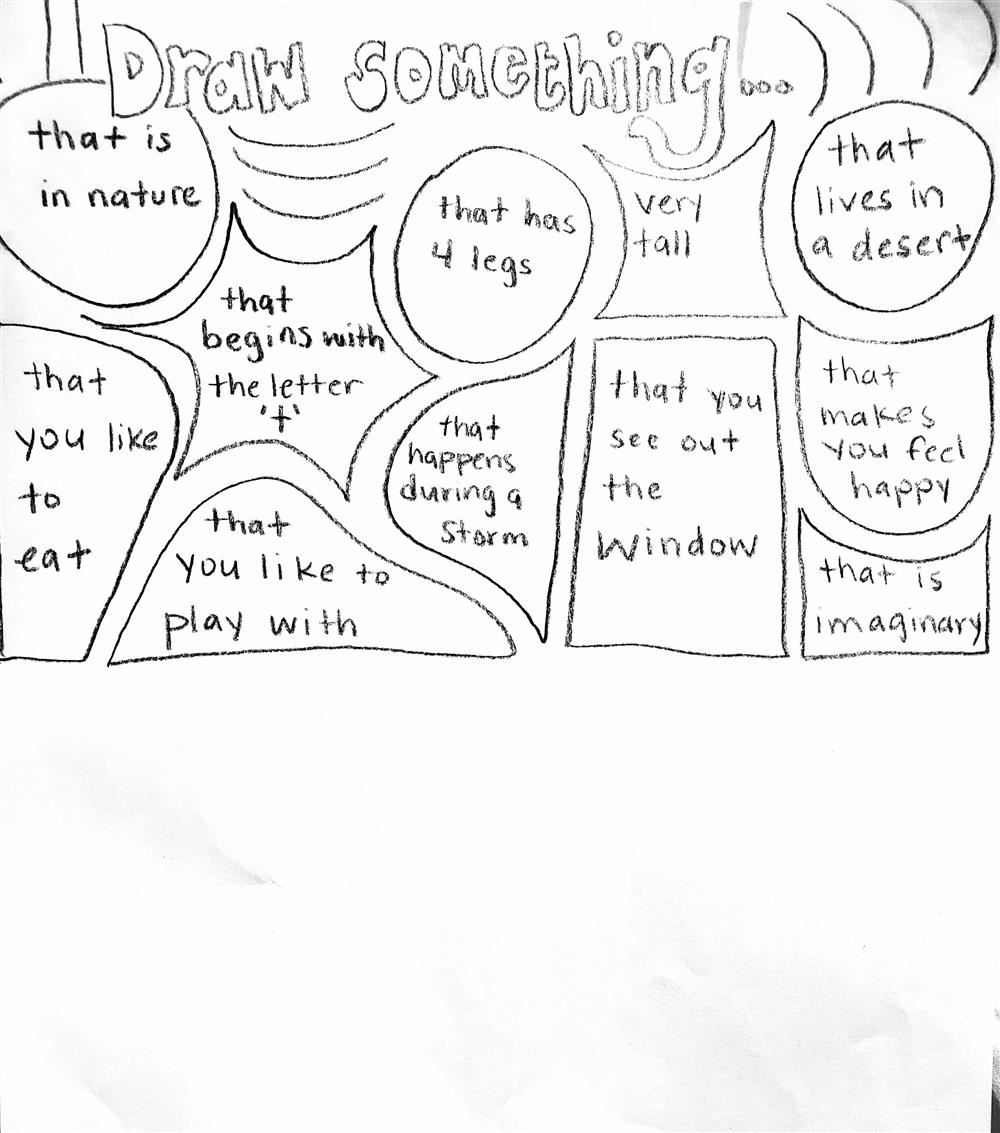 Draw something...
that is
in nature
that
begins with
the letter
't'
that has
4 legs
very
tall
that
lives in
a desert
that
you like
to
eat
that
you like to
play with
that
happens
during a
storm
that you
see out
the
window
that
makes
you feel
happy
that is
imaginary